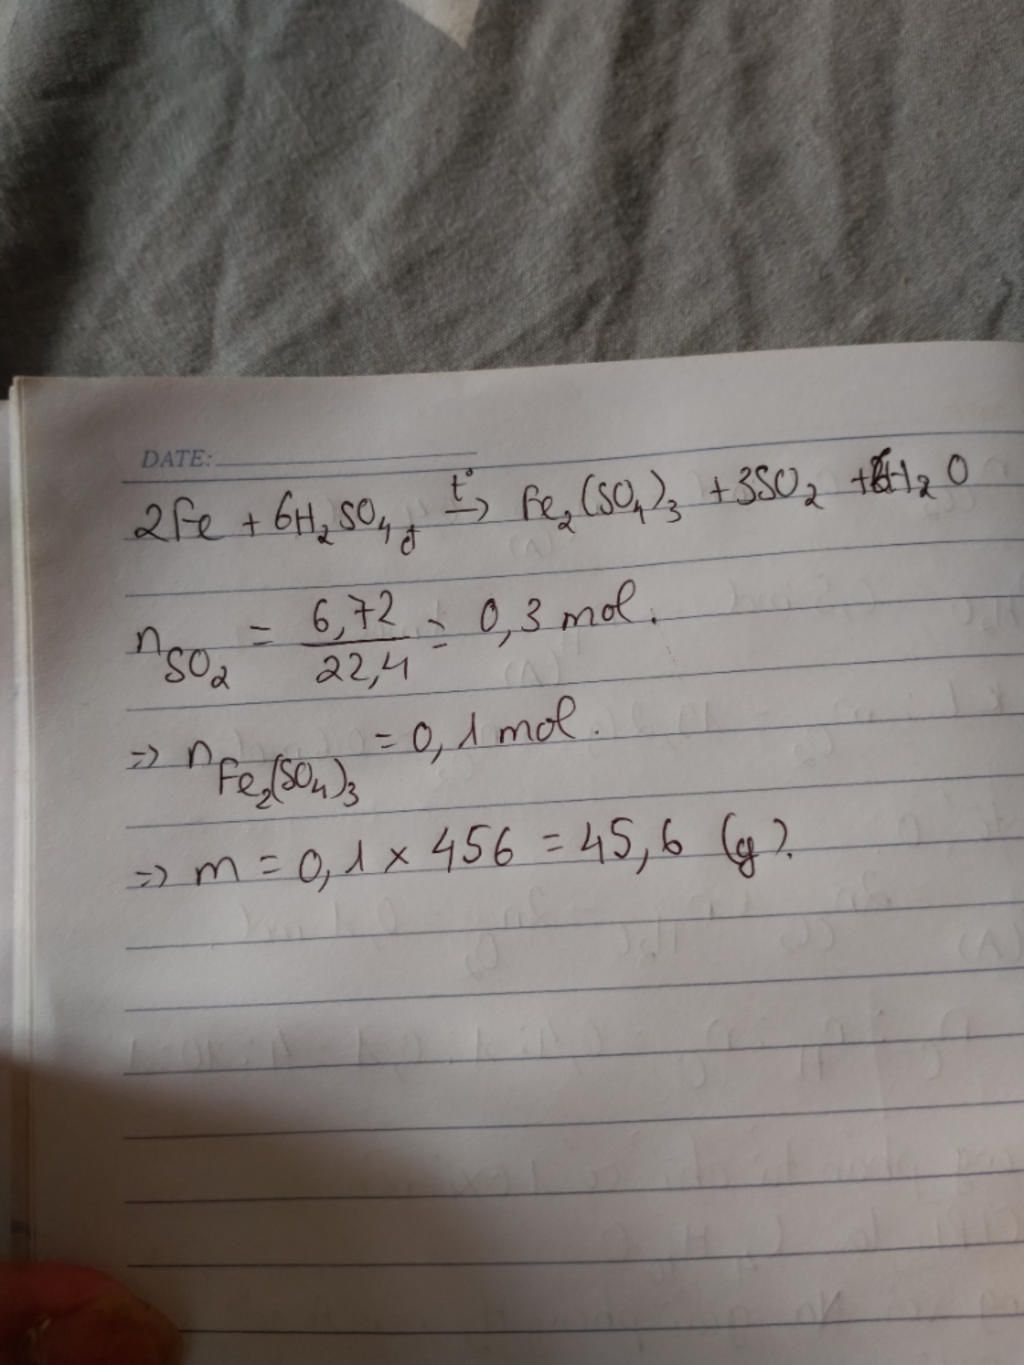 DATE:
2Fe + 6H₂SO₄ đ t° → Fe₂(SO₄)₃ + 3SO₂ + 6H₂O
n SO₂ = 6,72 / 22,4 = 0,3 mol.
=> n Fe₂(SO₄)₃ = 0,1 mol.
=> m = 0,1 × 456 = 45,6 (g).